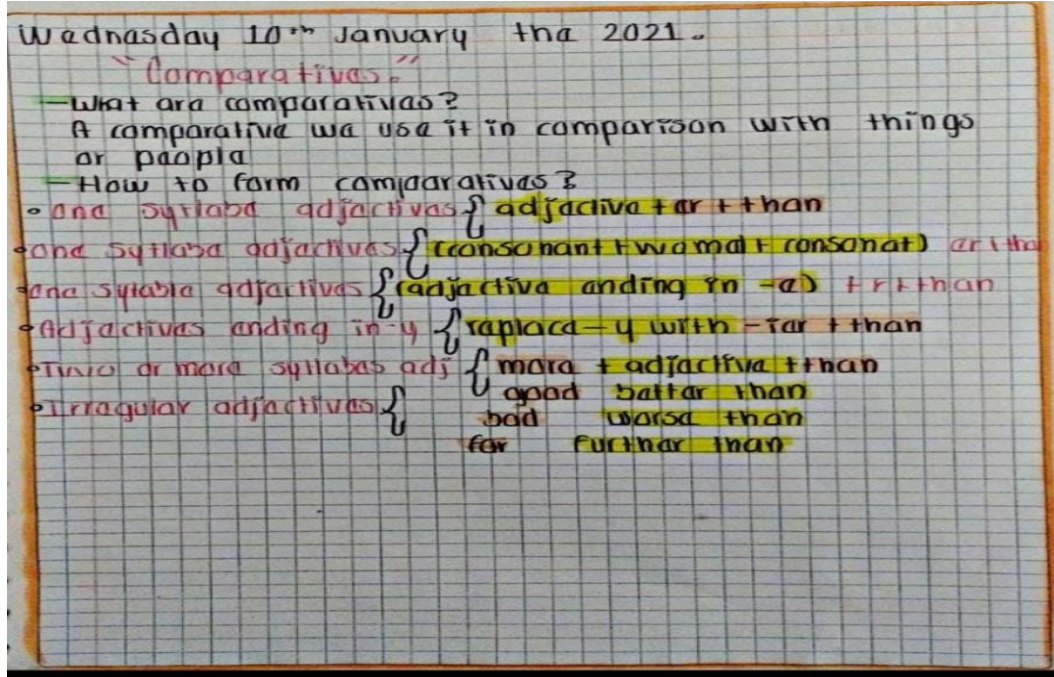 Wednesday 10th January the 2021.
"Comparatives."
- What are comparatives?
A comparative we use it in comparison with things
or people
- How to form comparatives?
• one syllabe adjectives { adjective + er + than
• one syllabe adjectives { (consonant + womal + consonat) er + than
• one sylable adjectives { (adjective ending in -e) + r + than
• Adjectives ending in -y { replace -y with -ier + than
• Two or more syllabes adj { more + adjective + than
• Irregular adjectives { good better than
bad worse than
far further than